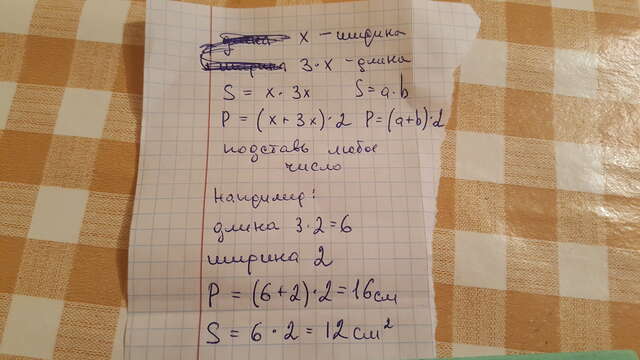 x - ширина
3·x - длина
S = x · 3x S = a·b
P = (x + 3x)·2 P = (a+b)·2
подставь любое
число
Например:
длина 3·2=6
ширина 2
P = (6+2)·2 = 16 см
S = 6 · 2 = 12 см²